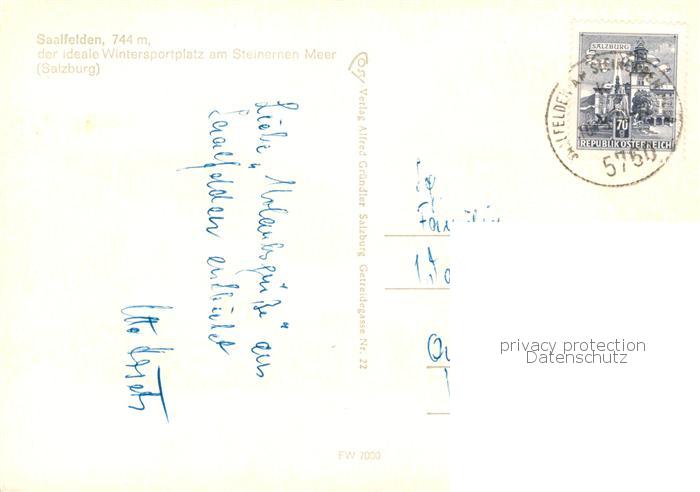 Saalfelden, 744 m,
der ideale Wintersportplatz am Steinernen Meer
(Salzburg)
Cosy Verlag Alfred Gründler Salzburg Getreidegasse Nr. 22
SALZBURG
70
REPUBLIK ÖSTERREICH
SAALFELDEN AM STEINERNEN
5760
Liebe „Urlaubsgrüße" aus
Saalfelden entbietet
Fam
privacy protection
Datenschutz
FW 7000